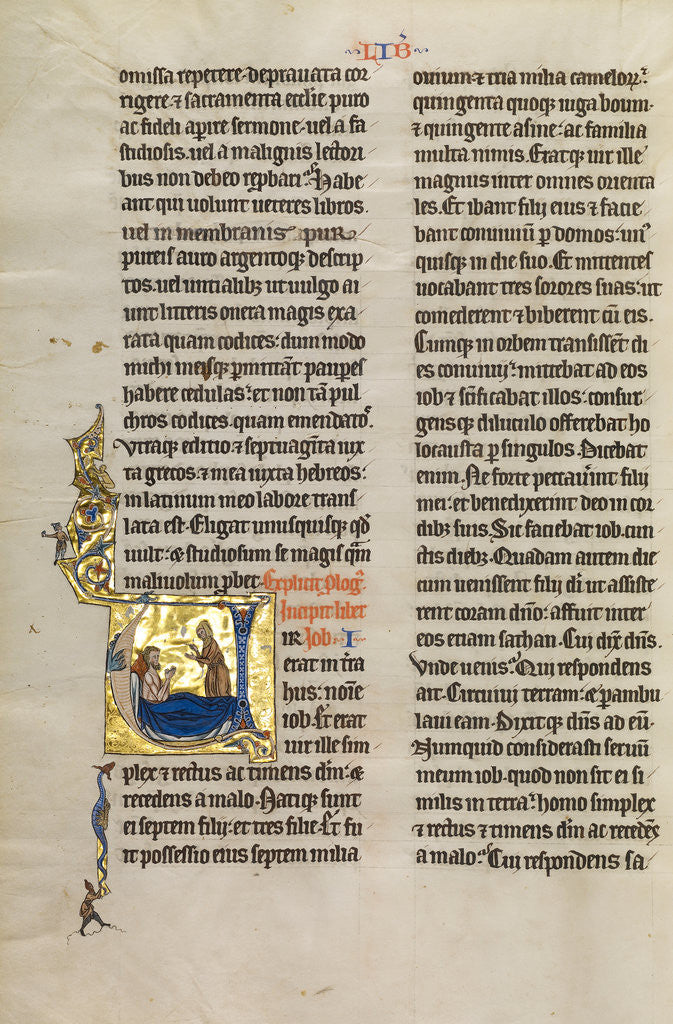 LIB
omissa repetere· deprauata cor
rigere ⁊ sacramenta ecclie puro
ac fideli aperire sermone· uel a fa
stidiosis· uel a malignis lectori
bus non debeo rep̱bari· Habe
ant qui uolunt ueteres libros·
uel in membranis pur
pureis auro argentoqꝫ descrip
tos· uel untialibꝫ ut uulgo ai
unt litteris onera magis exa
rata quam codices: dum modo
michi meisqꝫ ꝑmittāt paupes
habere cedulas: et non tā pul
chros codices· quam emendatos
Vtraqꝫ editio ⁊ septuagīta iux
ta grecos· ⁊ mea iuxta hebreos:
in latinum meo labore trans
lata est· Eligat unusquisqꝫ qđ
uult: & studiosum se magis quam
maliuolum ꝓbet· Explicit ꝓlogꝰ
Incipit liber
Iob· I
VIR
erat in tr̄a
hus: noīe
iob· Et erat
uir ille sim
plex ⁊ rectus ac timens dm̄: &
recedens a malo· Natiqꝫ sunt
ei septem filij: et tres filie· Et fu
it possessio eius septem milia
ouium ⁊ tria milia camelorꝝ:
quingenta quoqꝫ iuga boum·
⁊ quingente asine: ac familia
multa nimis· Eratqꝫ uir ille
magnus inter omnes orienta
les· Et ibant filij eius ⁊ facie
bant conuiuiū ꝑ domos: unꝰ
quisqꝫ in die suo· Et mittentes
uocabant tres sorores suas: ut
comederent ⁊ biberent cū eis·
Cumqꝫ in orbem transissēt di
es conuiuij: mittebat ad eos
iob ⁊ scīficabat illos: consur
gensqꝫ diluculo offerebat ho
locausta ꝑ singulos· Dicebat
enim· Ne forte peccauīnt filij
mei: et benedixerint deo in cor
dibꝫ suis· Sic faciebat iob· cun
ctis diebꝫ· Quadam autem die
cum uenissent filij dī ut assiste
rent coram dn̄o: affuit inter
eos etiam sathan· Cui dix̄ dn̄s·
Vnde uenis· Qui respondens
ait· Circuiui terram: & perambu
laui eam· Dixitqꝫ dn̄s ad eū·
Numquid considerasti seruū
meum iob· quod non sit ei si
milis in terra: homo simplex
⁊ rectus ⁊ timens dm̄ ac recedēs
a malo· Cui respondens sa